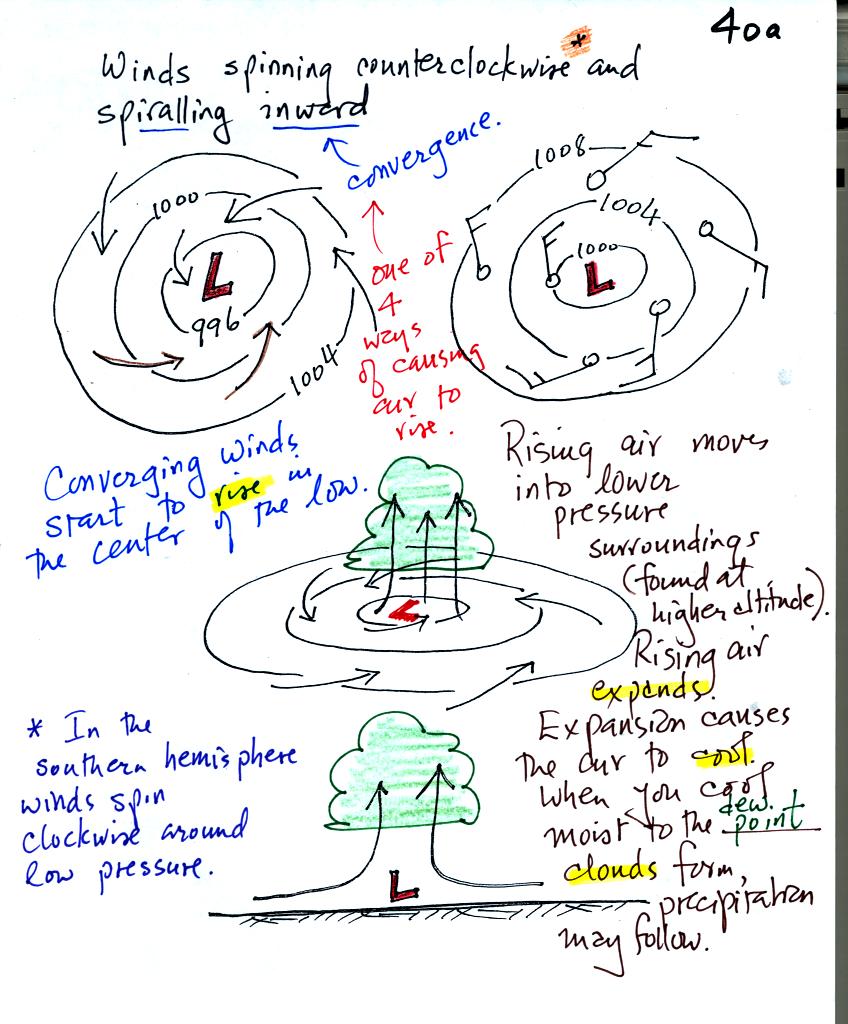 40a
Winds spinning counterclockwise * and
spiralling inward
convergence.
1000
L
996
1004
one of
4
ways
of causing
air to
rise.
1008
1004
1000
L
Converging winds
start to rise in
the center of the low.
Rising air moves
into lower
pressure
surroundings
(found at
higher altitude).
Rising air
expands.
L
Expansion causes
the air to cool.
When you cool
moist to the dew point
clouds form,
precipitation
may follow.
* In the
southern hemisphere
winds spin
clockwise around
low pressure.
L